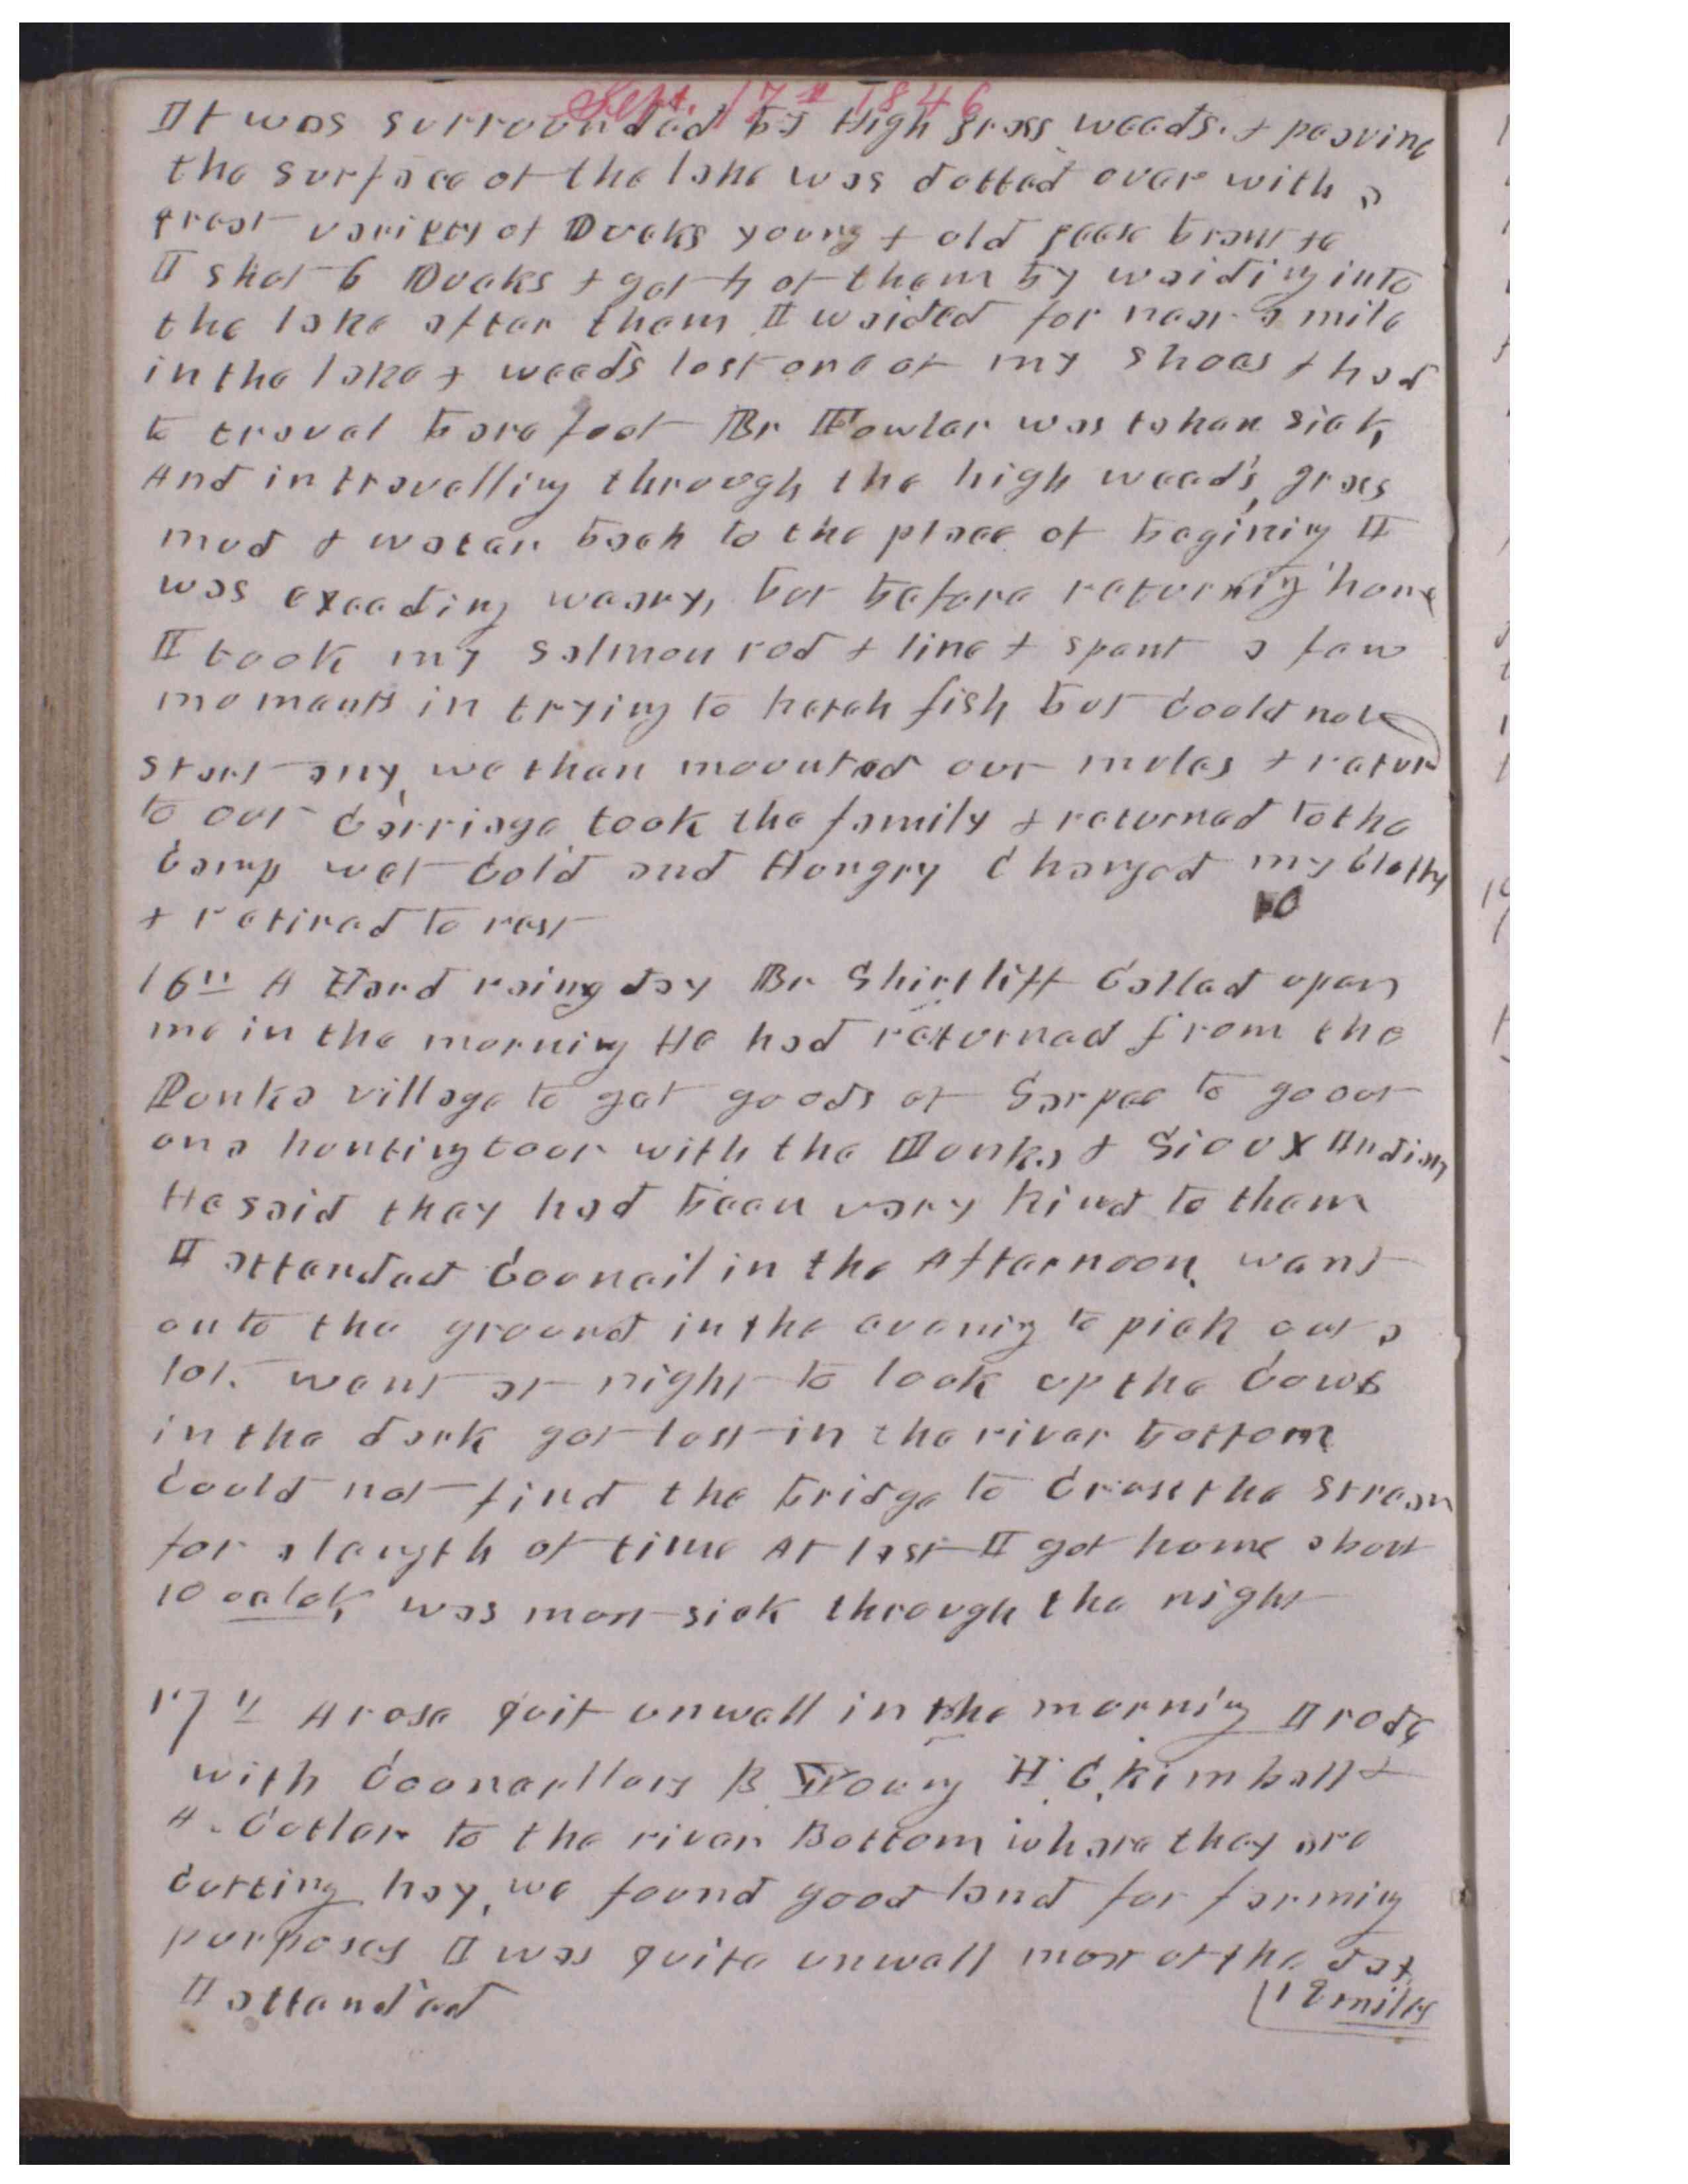 Sept. 17th 1846
It was surrounded by High grass weeds. & peavine
the surface of the lake was dotted over with a
great variety of Ducks young & old geese brant &c
I shot 6 Ducks & got 4 of them by waiding into
the lake after them I waided for near a mile
in the lake & weeds lost one of my shoes & had
to travel bare foot Br Fowler was taken sick,
And in travelling through the high weeds, grass
mud & water back to the place of begining I
was exeeding weary, but before returnig home
I took my salmon rod & line & spent a few
moments in trying to ketch fish but Could not
start any, we then mounted our mules & return
to our Carriage took the family & returned to the
Camp wet Cold and Hungry Changed my Cloths
& retired to rest 10
16th A Hard rainy day Br Shirtliff Called upon
me in the morning He had returned from the
Ponka village to get goods of Sarpee to go out
on a hunting tour with the Ponka & Sioux Indian
He said they had been very kind to them
I attended Council in the Afternoon, went
on to the ground in the evenig to pick out a
lot. went at night to look up the Cows
in the dark got lost in the river bottom
Could not find the bridge to Cross the stream
for a length of time At last I got home about
10 oclok, was most sick through the night
17th Arose quit unwell in the mornig I rode
with Councellors B Young H. C. Kimball &
A. Cutler to the river Bottom whare they are
Cutting hay, we found good land for farmig
purposes I was quite unwell most of the day
I attended 12 miles